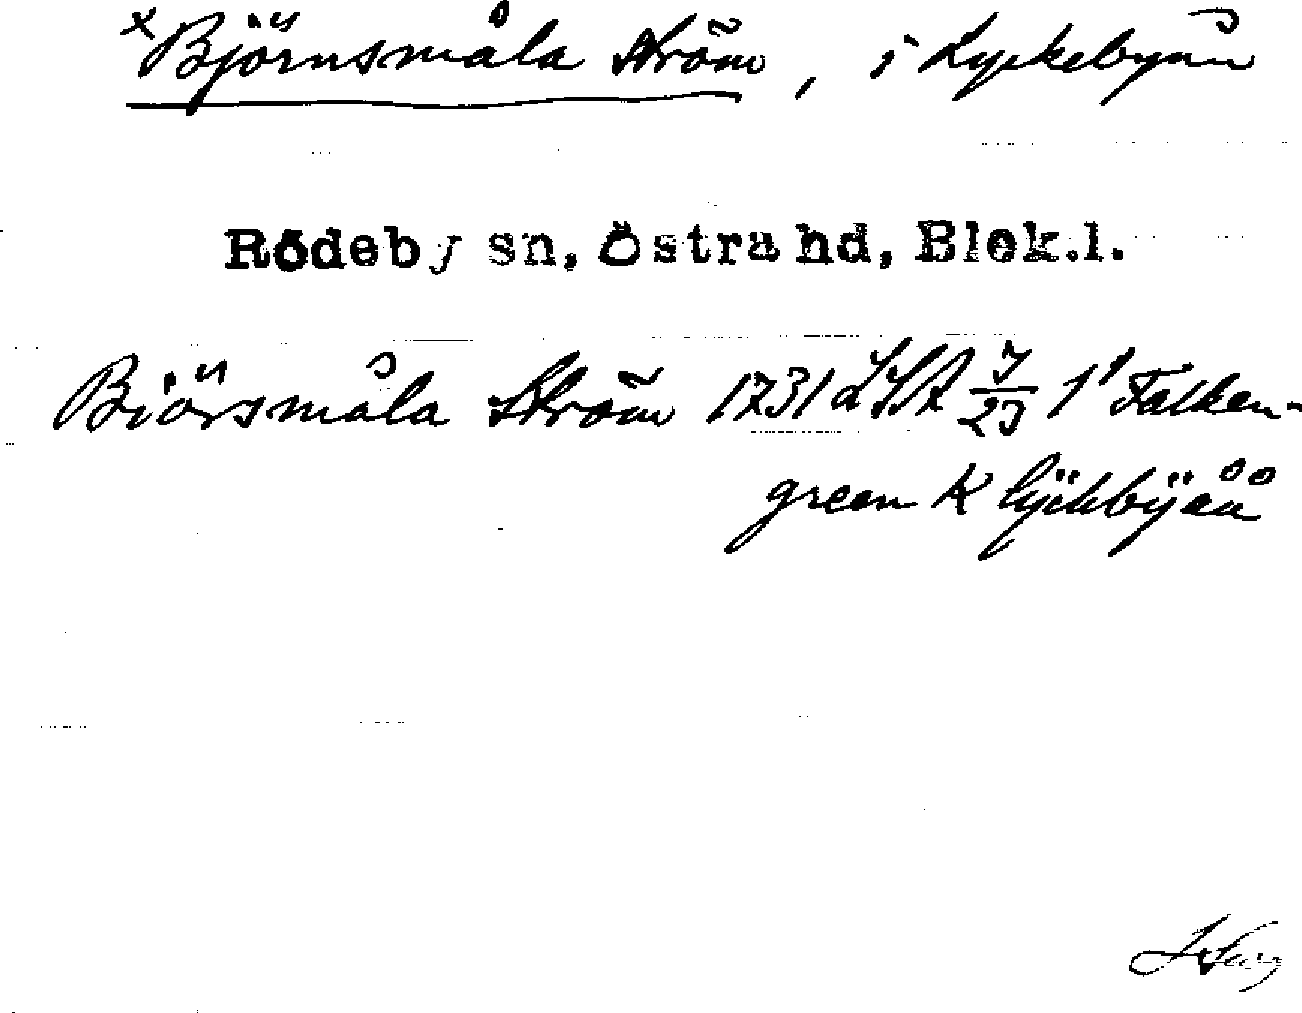 x Björnsmåla ström, i Lyckebyån
Rödeby sn, Östra hd, Blek.l.
Biörsmåla Ström 1731 LSA J/23 1¹ Falken-
green K lÿckbÿåå